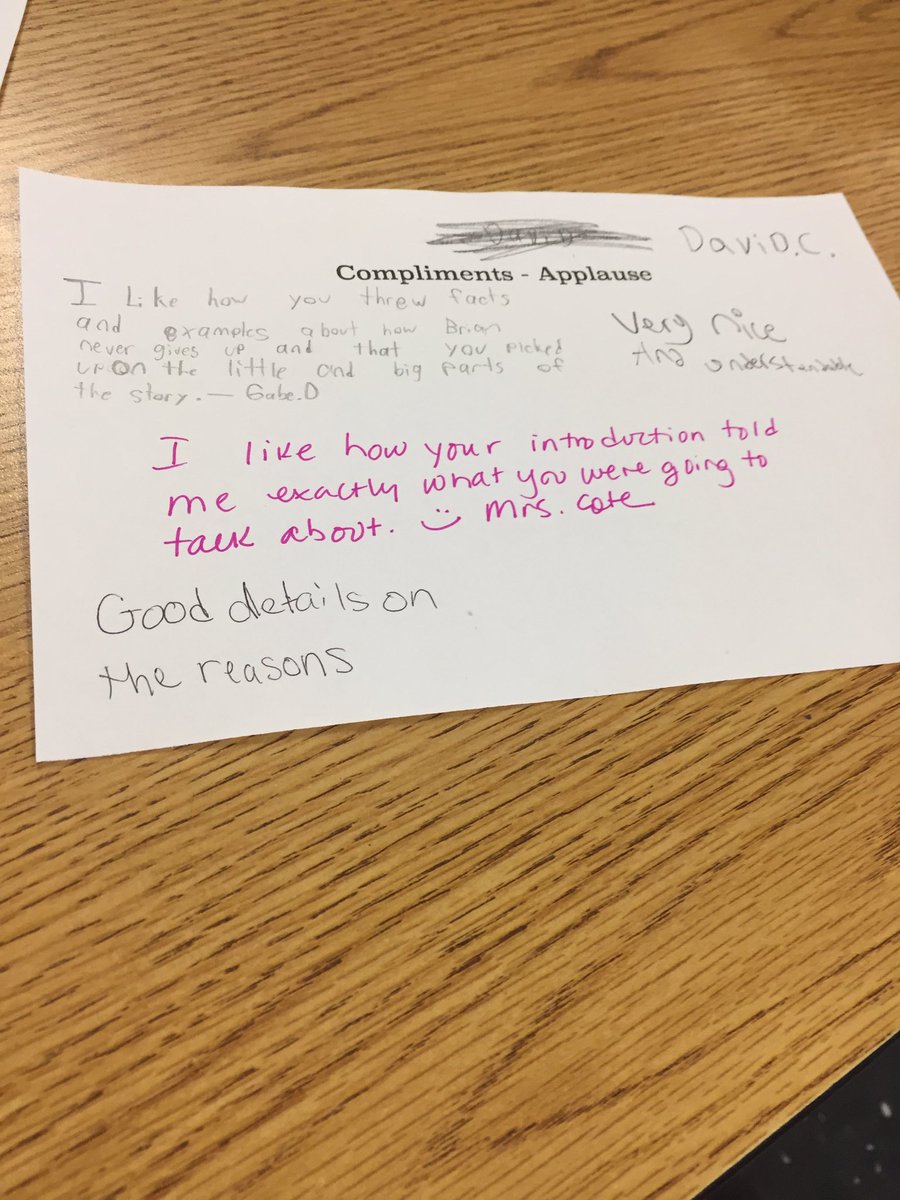 David
DaviD.C.
Compliments - Applause
I Like how you threw facts
and examples about how Brian
never gives up and that you picked
upon the little and big parts of
the story. — Gabe.D
Very nice
AnD
I like how your introduction told
me exactly what you were going to
talk about. :) Mrs. Cote
Good details on
the reasons